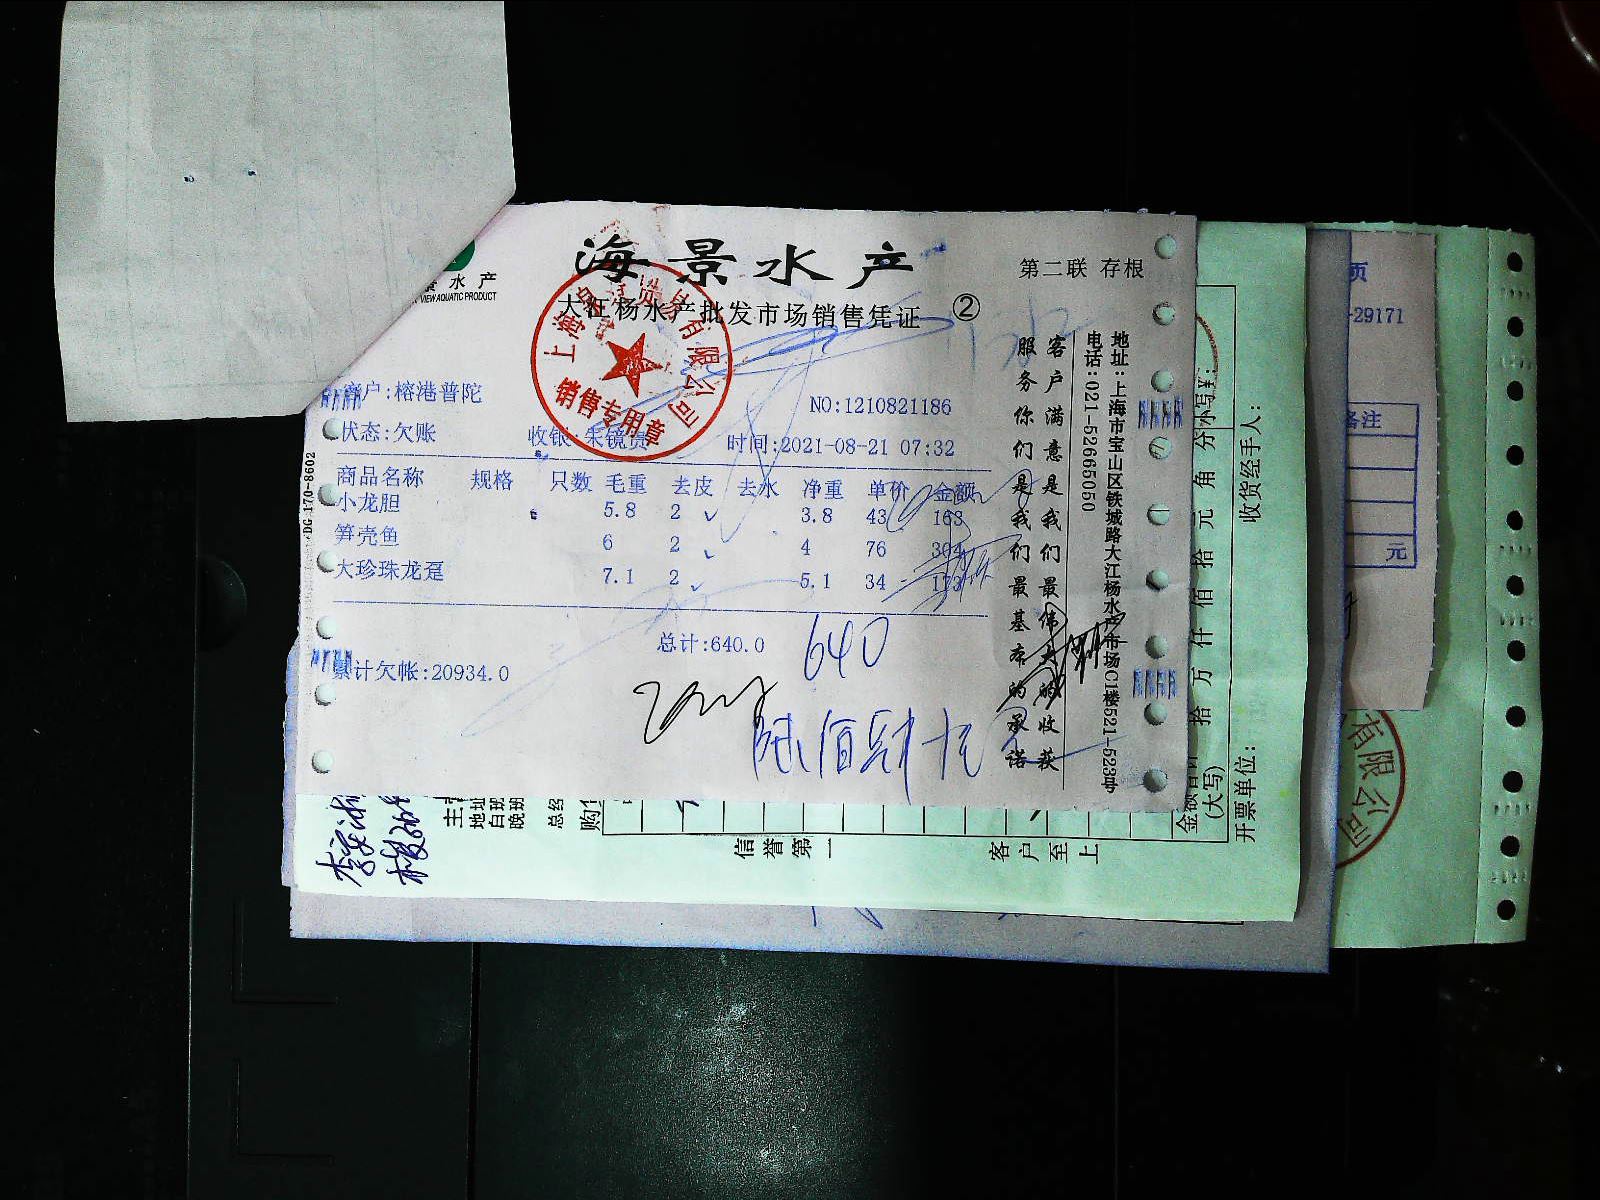 海景水产
第二联 存根
水产
VIEW AQUATIC PRODUCT
大江杨水产批发市场销售凭证 ②
商户:榕港普陀
NO:1210821186
状态:欠账 收银:朱镜贵 时间:2021-08-21 07:32
商品名称 规格 只数 毛重 去皮 去水 净重 单价 金额
小龙胆 5.8 2 3.8 43 163
笋壳鱼 6 2 4 76 304
大珍珠龙趸 7.1 2 5.1 34 173
总计:640.0
640
累计欠帐:20934.0
陆佰肆十元
销售专用章
有限公司
客户满意是我们最伟大的收获
服务你们是我们最基本的承诺
地址:上海市宝山区铁城路大江杨水产市场C1楼521-523号
电话:021-52665050
DG 170-8602
地址
白班
晚班
信誉第一
客户至上
拾万仟佰拾元角分 小写¥:
(大写)
收货经手人:
开票单位:
-29171
备注
元
有限公司